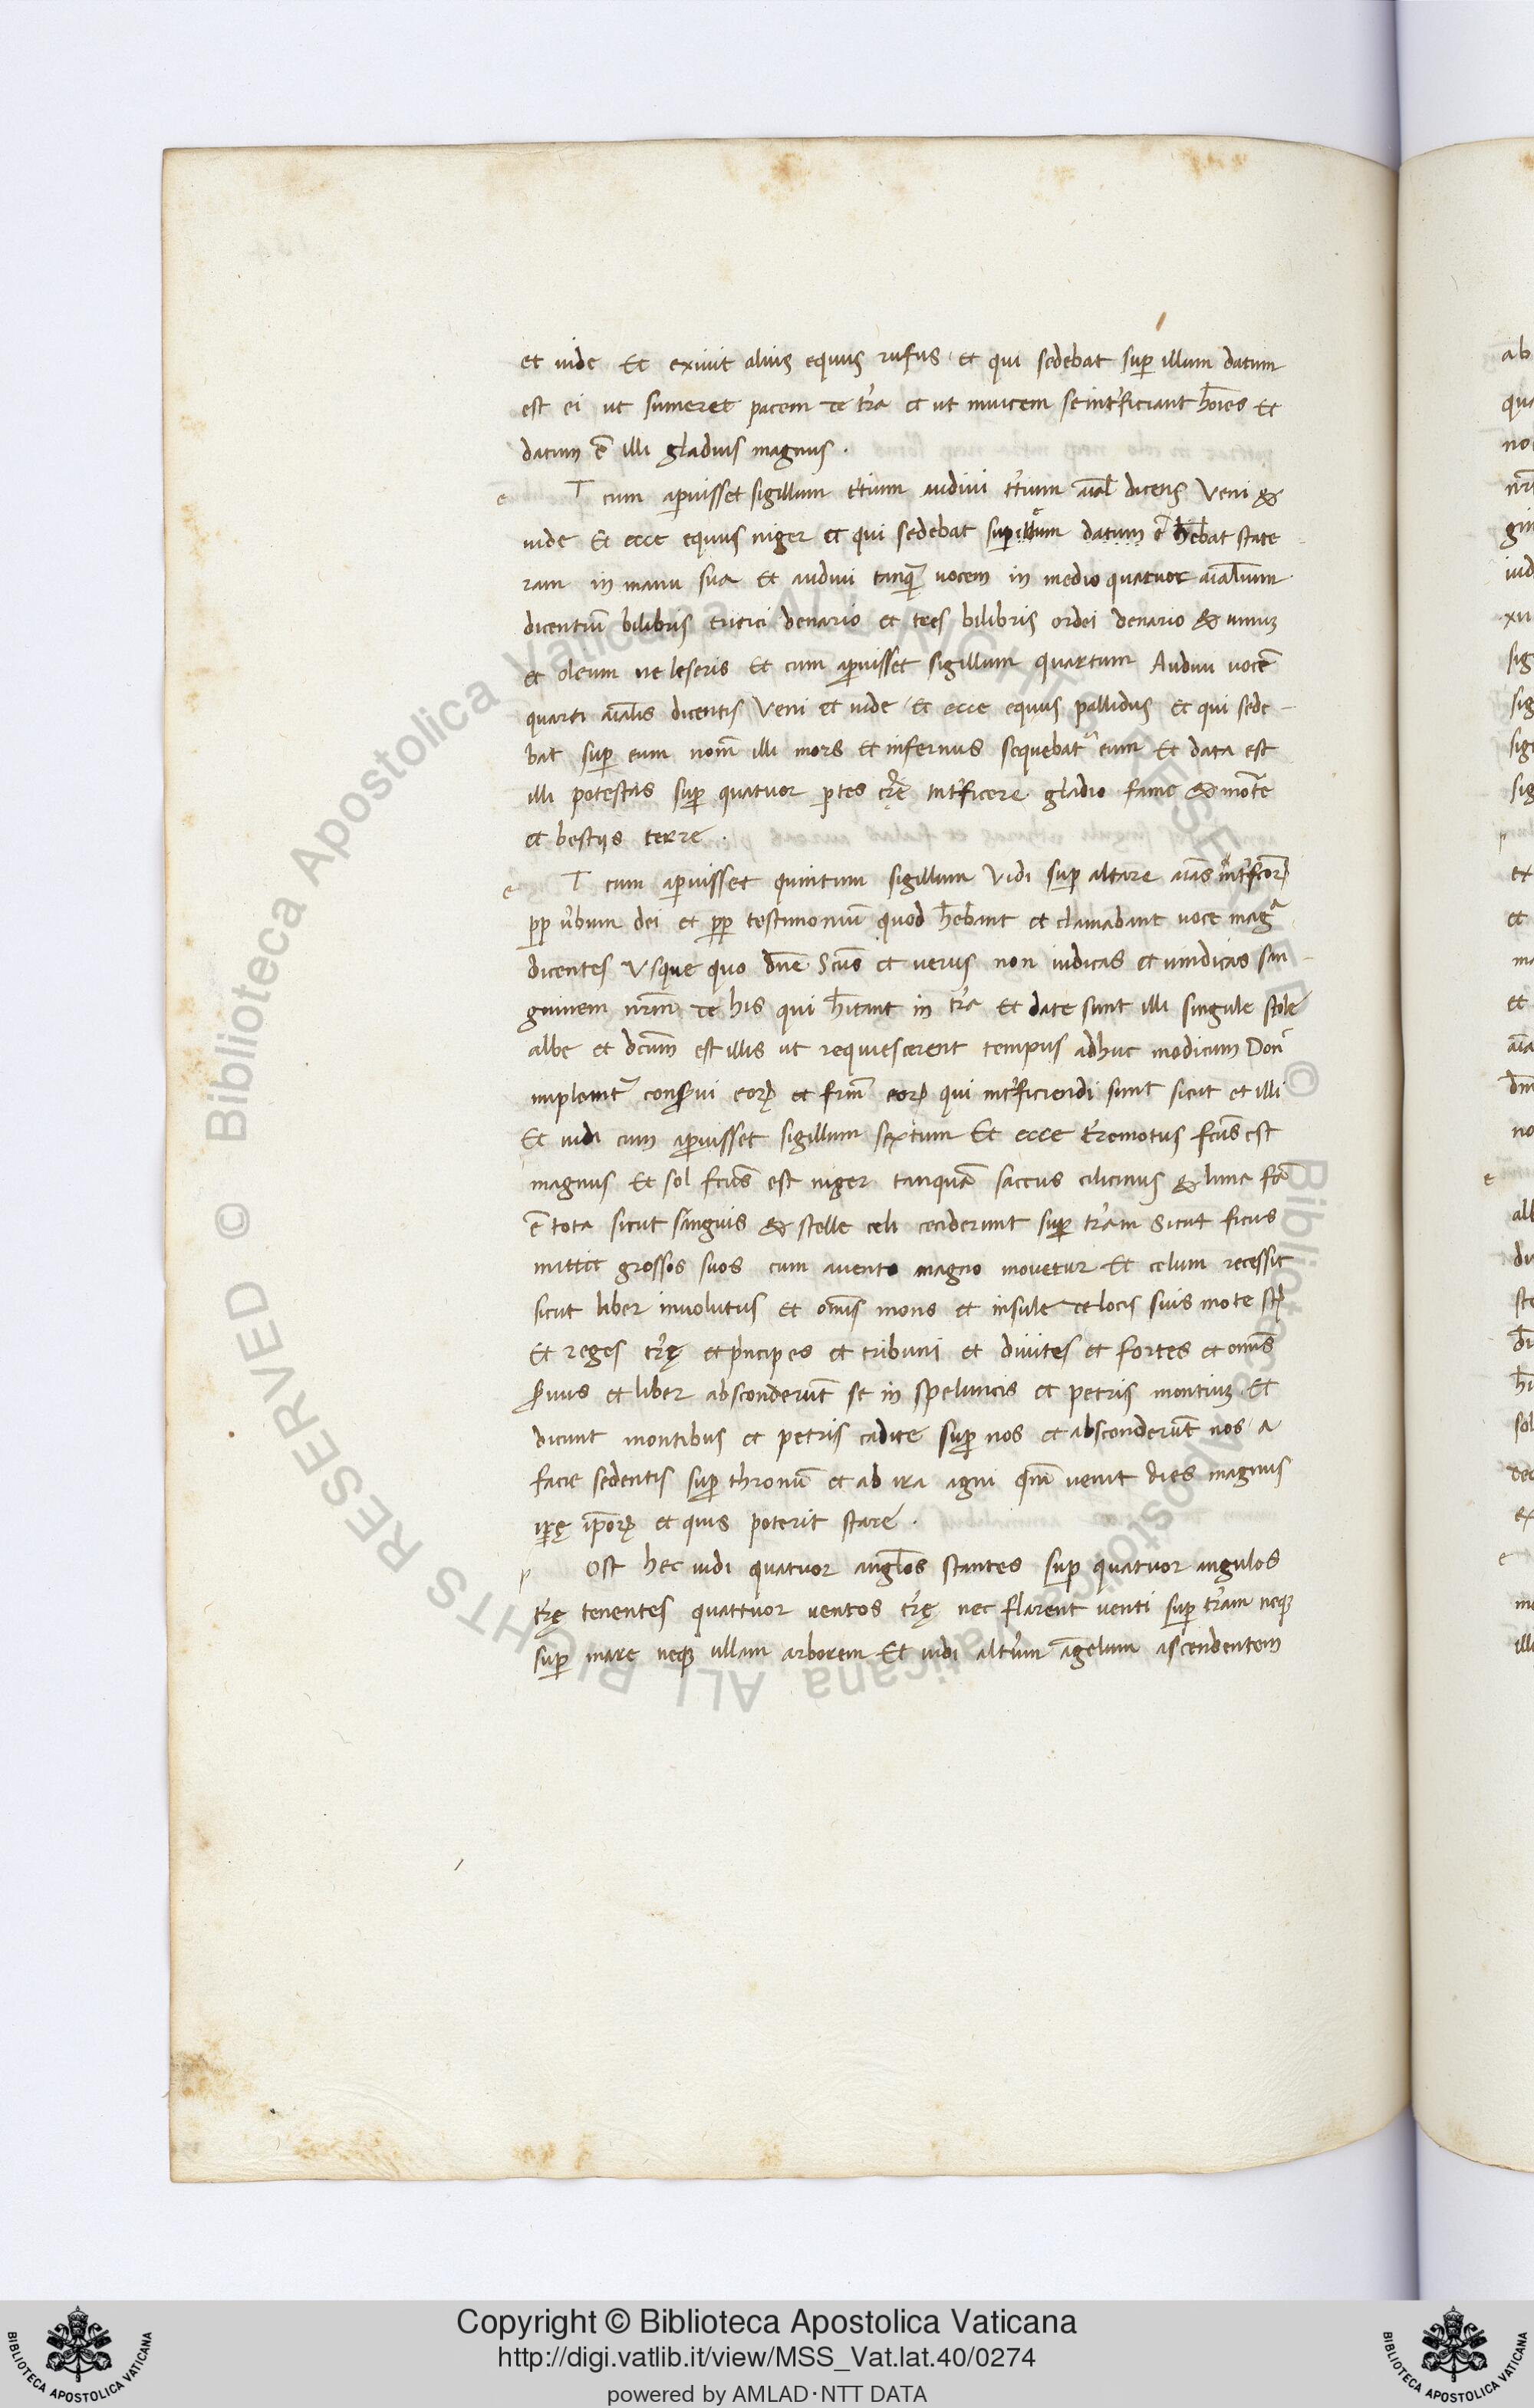 et uide Et exiuit alius equus rufus et qui sedebat sup̱ illum datum
est ei ut sumeret pacem de t̃ra et ut inuicem se int̃ficiant hõies Et
datum ẽ illi gladius magnus .
e T cum ap̱uisset sigillum t̃tium audiui t̃tium aĩal dicens Veni &
uide Et ecce equus niger et qui sedebat sup̱ illum datum ẽ hẽbat state
ram in manu sua Et audiui tanq̃ uocem in medio quatuor aĩalium
dicentiũ bilibris tritici denario et tres bilibris ordei denario & uinuȝ
et oleum ne leseris Et cum ap̱uisset sigillum quartum Audiui uocẽ
quarti aĩalis dicentis Veni et uide Et ecce equus pallidus Et qui sede -
bat sup̱ eum nom̃ illi mors Et infernus sequebat᷑ eum Et data est
illi potestas sup̱ quatuor p̱tes t̃rę int̃ficere gladio fame & mor̃te
et bestijs terre .
e T cum ap̱uisset quintum sigillum Vidi sup̱ altare aĩas int̃fcõꝝ
pp̱ u̓bum dei et pp̱ testimoniũ quod hẽbant et clamabant uoce mag̃
dicentes Vsque quo dñe Scũs et uerus non iudicas et uindicas san -
guinem nr̃m de his qui hĩtant in t̃ra Et date sunt illi singule stole
albe et dc̃um est illis ut requiescerent tempus adhuc modicum Don̓
impleant᷑ conſ̓ui eoꝝ et fr̃m eoꝝ qui int̃ficiendi sunt sicut et illi
Et uidi cum ap̱uisset sigillum sextum Et ecce t̃remotus fc̃us est
magnus Et sol fc̃us est niger tanquã saccus cilicinus & luna fc̃a
ẽ tota sicut sanguis & stelle celi ceciderunt sup̱ t̃ram Sicut ficus
mittit grossos suos cum auento magno mouetur Et celum recessit
sicut liber inuolutus Et om̃is mons et insule de locis suis mote st̃
Et reges t̃rę et p̓ncipes et tribuni et diuites et fortes et om̃is
ſ̓uus et liber absconderũt se in speluncis et petris montiuȝ Et
dicunt montibus et petris cadite sup̱ nos et absconderũt nos a
facie sedentis sup̱ thronũ et ab ira agni qm̃ uenit dies magnus
irę ip̃oꝝ et quis poterit stare .
p Ost hec uidi quatuor anglõs stantes sup̱ quatuor angulos
t̃rę tenentes quattuor uentos t̃rę nec flarent uenti sup̱ t̃ram neqȝ
sup̱ mare neqȝ ullam arborem Et uidi alt̃um angelum ascendentem
© Biblioteca Apostolica Vaticana ALL RIGHTS RESERVED
© Biblioteca Apostolica Vaticana ALL RIGHTS RESERVED
BIBLIOTECA APOSTOLICA VATICANA
Copyright © Biblioteca Apostolica Vaticana
http://digi.vatlib.it/view/MSS_Vat.lat.40/0274
powered by AMLAD·NTT DATA
BIBLIOTECA APOSTOLICA VATICANA